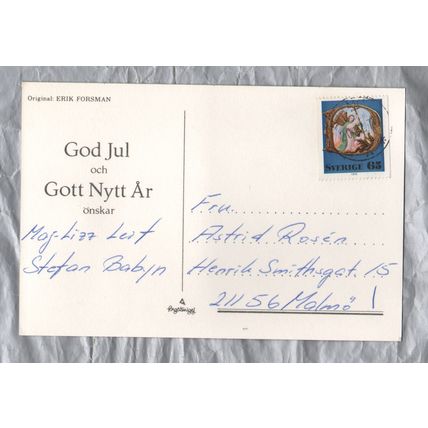 Original: ERIK FORSMAN
God Jul
och
Gott Nytt År
önskar
Maj-Lizz Leif
Stefan Babyn
SVERIGE 65
Fru.
Astrid Rosén
Henrik Smithsgat. 15
211 56 Malmö!